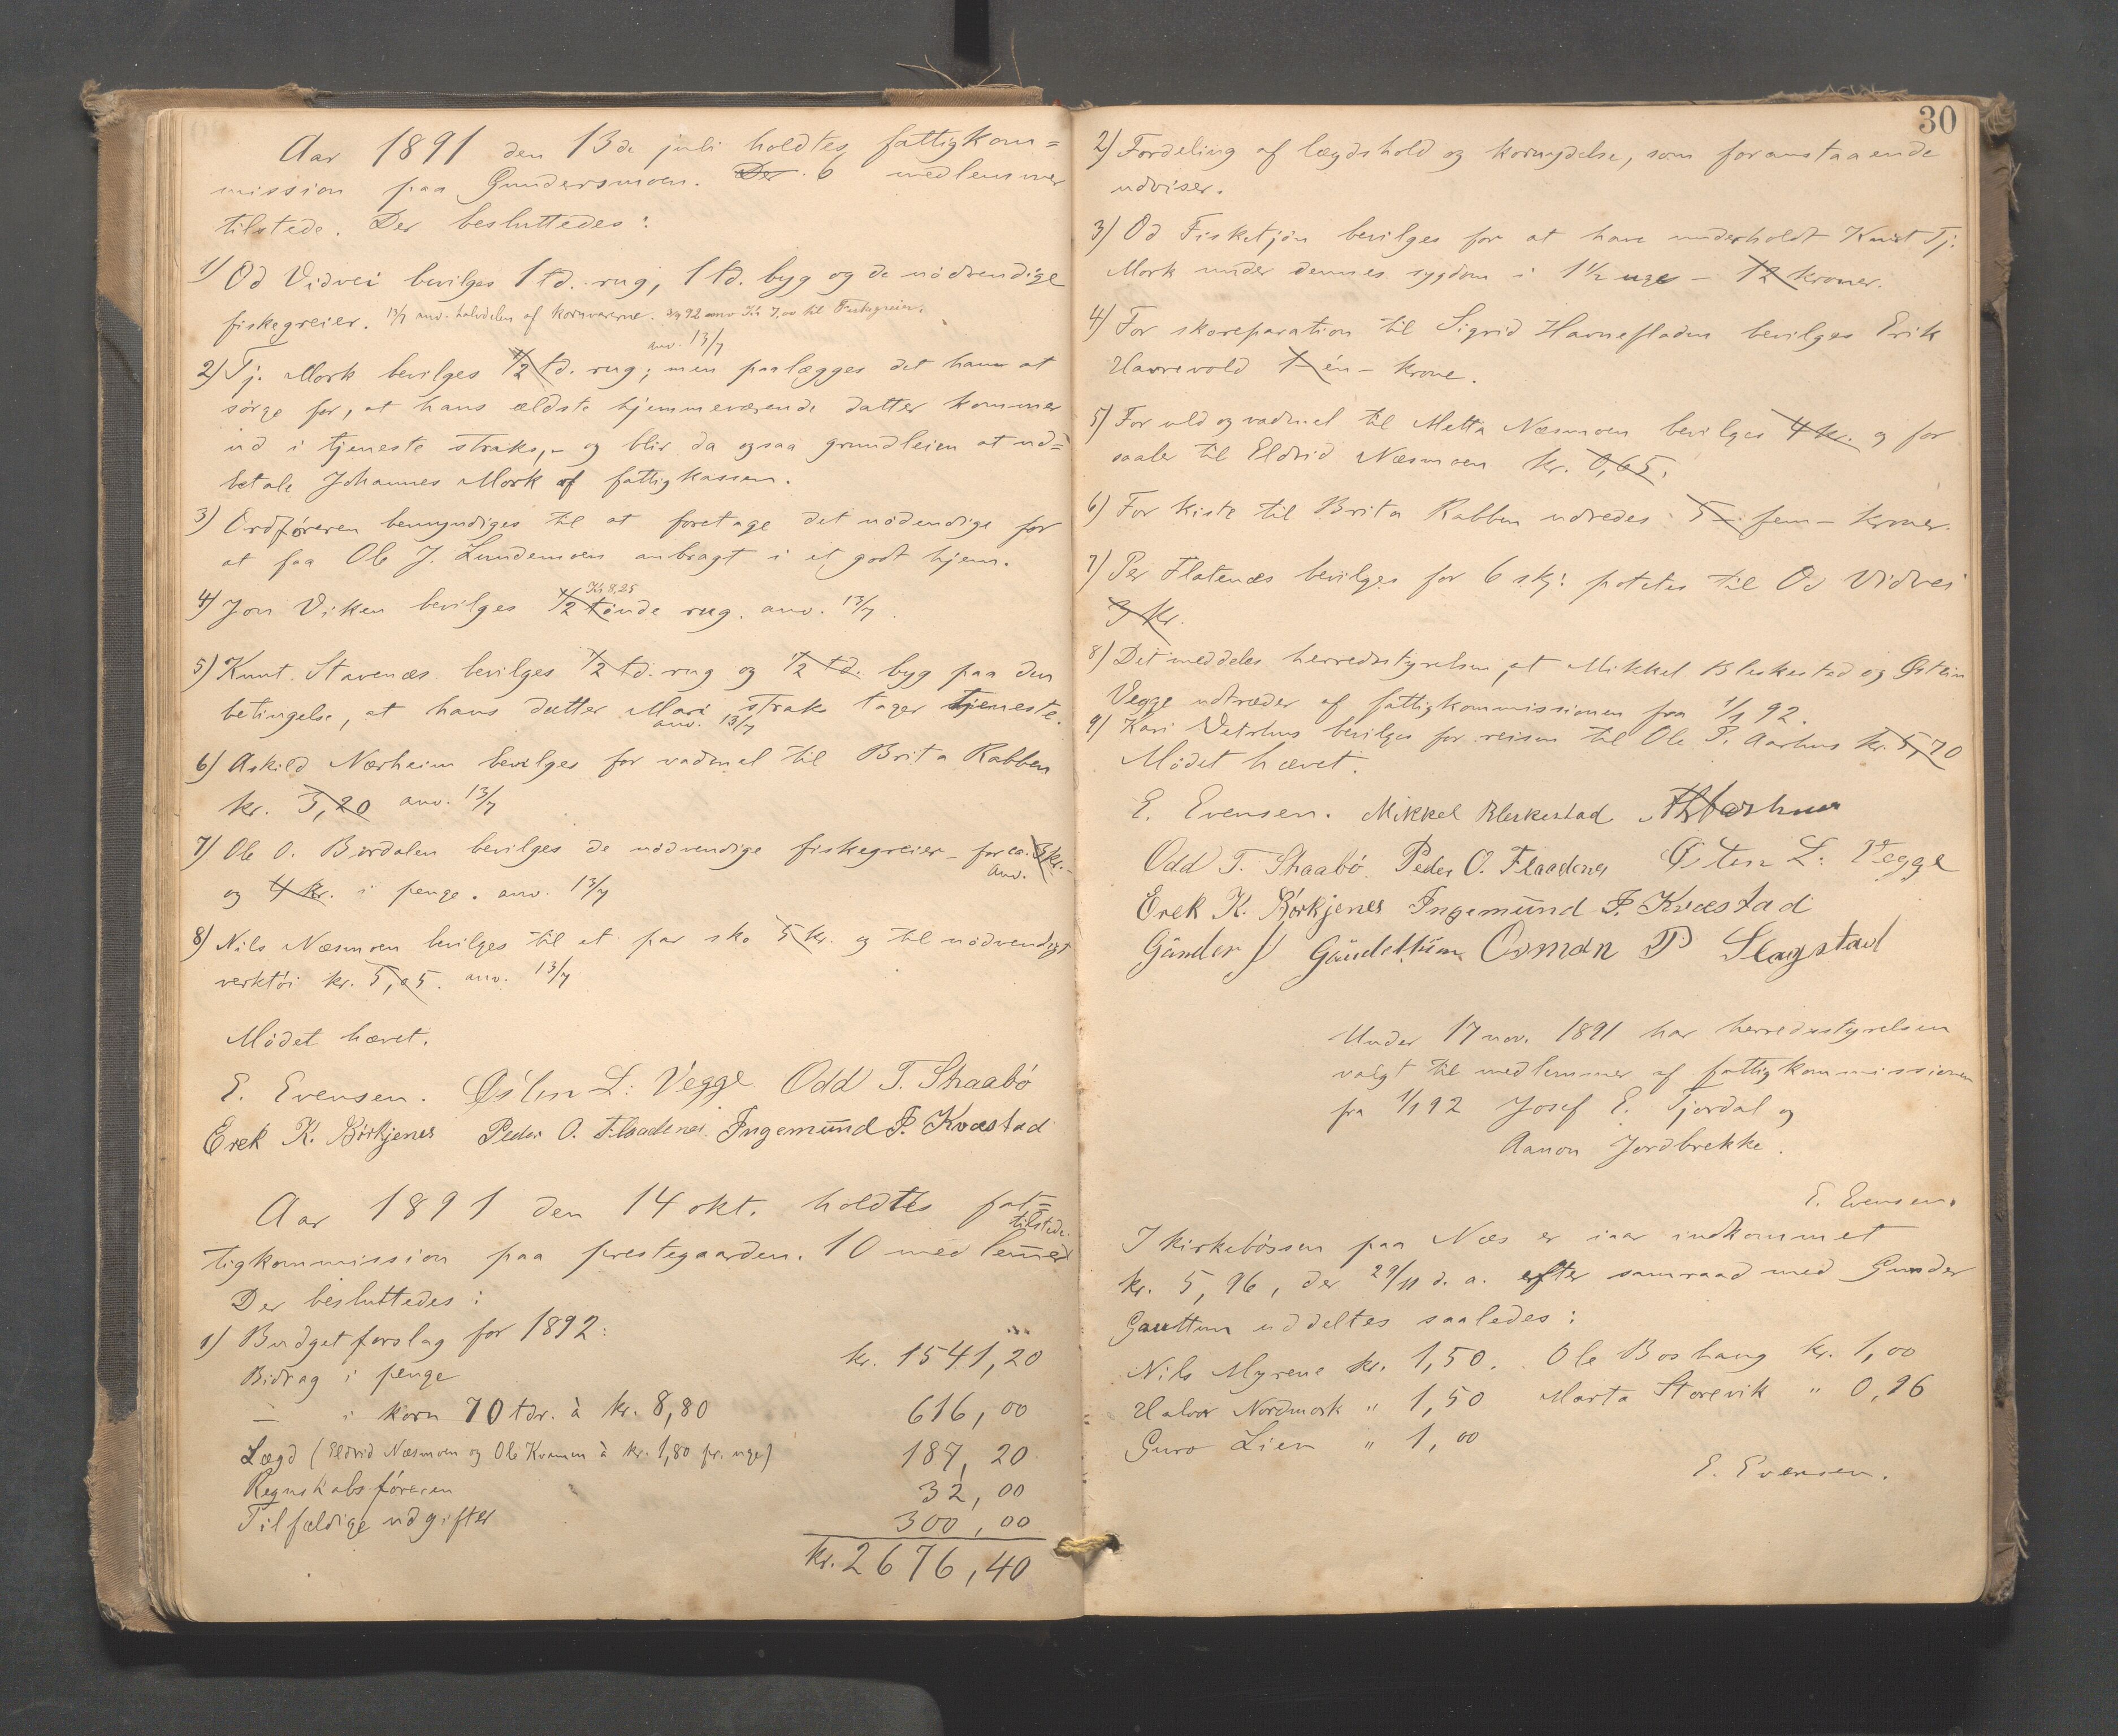 Aar 1891 den 13de juli holdtes fattigkom=
mission paa Gundersmoen. Der 6 medlemmer
tilstede. Der besluttedes:
1) Od Vidvei bevilges 1 td. rug, 1 td. byg og de nödvendige
fiskegreier. 13/7 anv. halvdelen af kornvarerne. 92 anv Kr. 7,00 til Fiskegreier.
anv. 13/7
2) Tj. Mork bevilges 1/2 td. rug; men paalægges det ham at
sörge for, at hans ældste hjemmeværende datter kommer
ud i tjeneste straks, - og blir da ogsaa grundleien at ud=
betale Johannes Mork af fattigkassen.
3) Ordföreren bemyndiges til at foretage det nödendige for
at faa Ole J. Lundemoen anbragt i et godt hjem.
Kr 8,25
4) Jon Viken bevilges 1/2 tönde rug. anv. 13/7.
5) Knut Stavenæs bevilges 1/2 td. rug og 1/2 td. byg paa den
betingelse, at hans datter Mari straks tager tjeneste.
anv. 13/7
6) Askild Nærheim bevilges for vadmel til Brita Rabben
kr. 3,20 anv. 13/7
7) Ole O. Bördalen bevilges de nödvendige fiskegreier - for ca. 3 kr. -
anv.
og 4 kr. i penge. anv. 13/7
8) Nils Næsmoen bevilges til et par sko 5 kr. og til nödvendigt
verktöi kr. 5,05. anv. 13/7
Mödet hævet.
E. Evensen. Östen L: Vegge Odd T. Skaabö
Erek K. Börkjenes Peder O. Flaadenes Ingemund P. Kvæstad
Aar 1891 den 14 okt. holdtes fat=
tilstede.
tigkommission paa prestegaarden. 10 medlemmer
Der besluttedes:
1) Budgetforslag for 1892:
Bidrag i penge kr. 1541,20
— i korn 70 tdr. à kr. 8,80 616,00
Lægd (Eldrid Næsmoen og Ole Kvamm à kr. 1,80 pr. uge) 187,20
Regnskabsföreren 32,00
Tilfældige udgifter 300,00
kr. 2676,40
30
2) Fordeling af lægdshold og kornydelse, som foranstaaende
udviser.
3) Od Fisketjön bevilges for at have underholdt Knut Tj.
Mork under dennes sygdom i 1 1/2 uge - 12 kroner.
4) For skoreparation til Sigrid Havnefladen bevilges Erik
Havrevold 1 - én - krone.
5) For uld og vadmel til Metta Næsmoen bevilges 4 kr. og for
saaler til Eldrid Næsmoen kr. 0,65.
6) For kiste til Brita Rabben udredes 5 - fem - kroner.
7) Per Flatenæs bevilges for 6 skj: poteter til Od Vidvei
9 kr.
8) Det meddeles herredsstyrelsen, at Mikkel Bleskestad og Östein
Vegge udtræder af fattigkommissionen fra 1/1 92.
9) Kari Vetrhus bevilges for reisen til Ole P. Aarhus kr. 5,70
Mödet hævet.
E. Evensen. Mikkel Bleskestad
Odd T. Skaabö. Peder O. Flaadenes Östen L: Vegge
Erek K. Börkjenes Ingemund P. Kvæstad
Gunder Osmon P Slagstad
Under 17 nov. 1891 har herredsstyrelsen
valgt til medlemmer af fattigkommissionen
fra 1/1 92 Josef E. Fjordal og
Aanon Jordbrekke.
E. Evensen.
I kirkebössen paa Næs er iaar indkommet
kr. 5,96, der 29/11 d. a. efter samraad med Gunder
Gauttun uddeltes saaledes:
Nils Myrene kr. 1,50. Ole Boshaug kr. 1,00
Halvor Nordmork " 1,50 Marta Storevik " 0,96
Guro Lien " 1,00
E. Evensen.